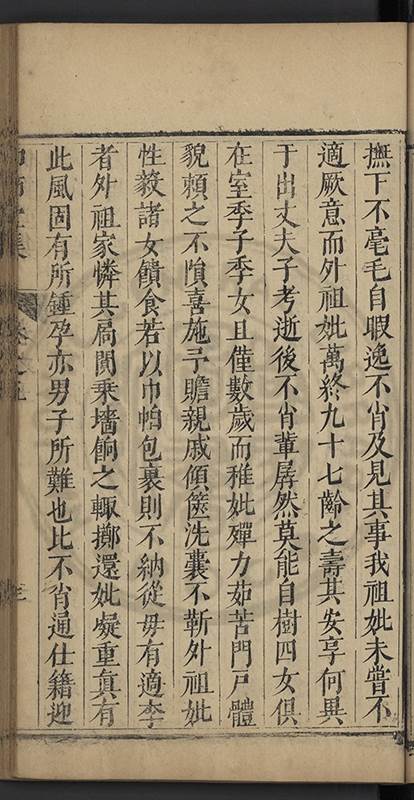 撫下不毫毛自暇逸不肖及見其事我祖妣未嘗不
適厥意而外祖妣萬終九十七齡之壽其安享何異
于出丈夫子考逝後不肖輩孱然莫能自樹四女俱
在室季子季女且僅數歲而稚妣殫力茹苦門戶體
貌頼之不隕喜施予贍親戚傾篋洗囊不靳外祖妣
性毅諸女饋食若以巾帕包裹則不納從毋有適李
者外祖家憐其局閴乗墻餉之輙擲還妣凝重眞有
此風固有所鍾孕亦男子所難也比不肖通仕籍迎
集 卷之五